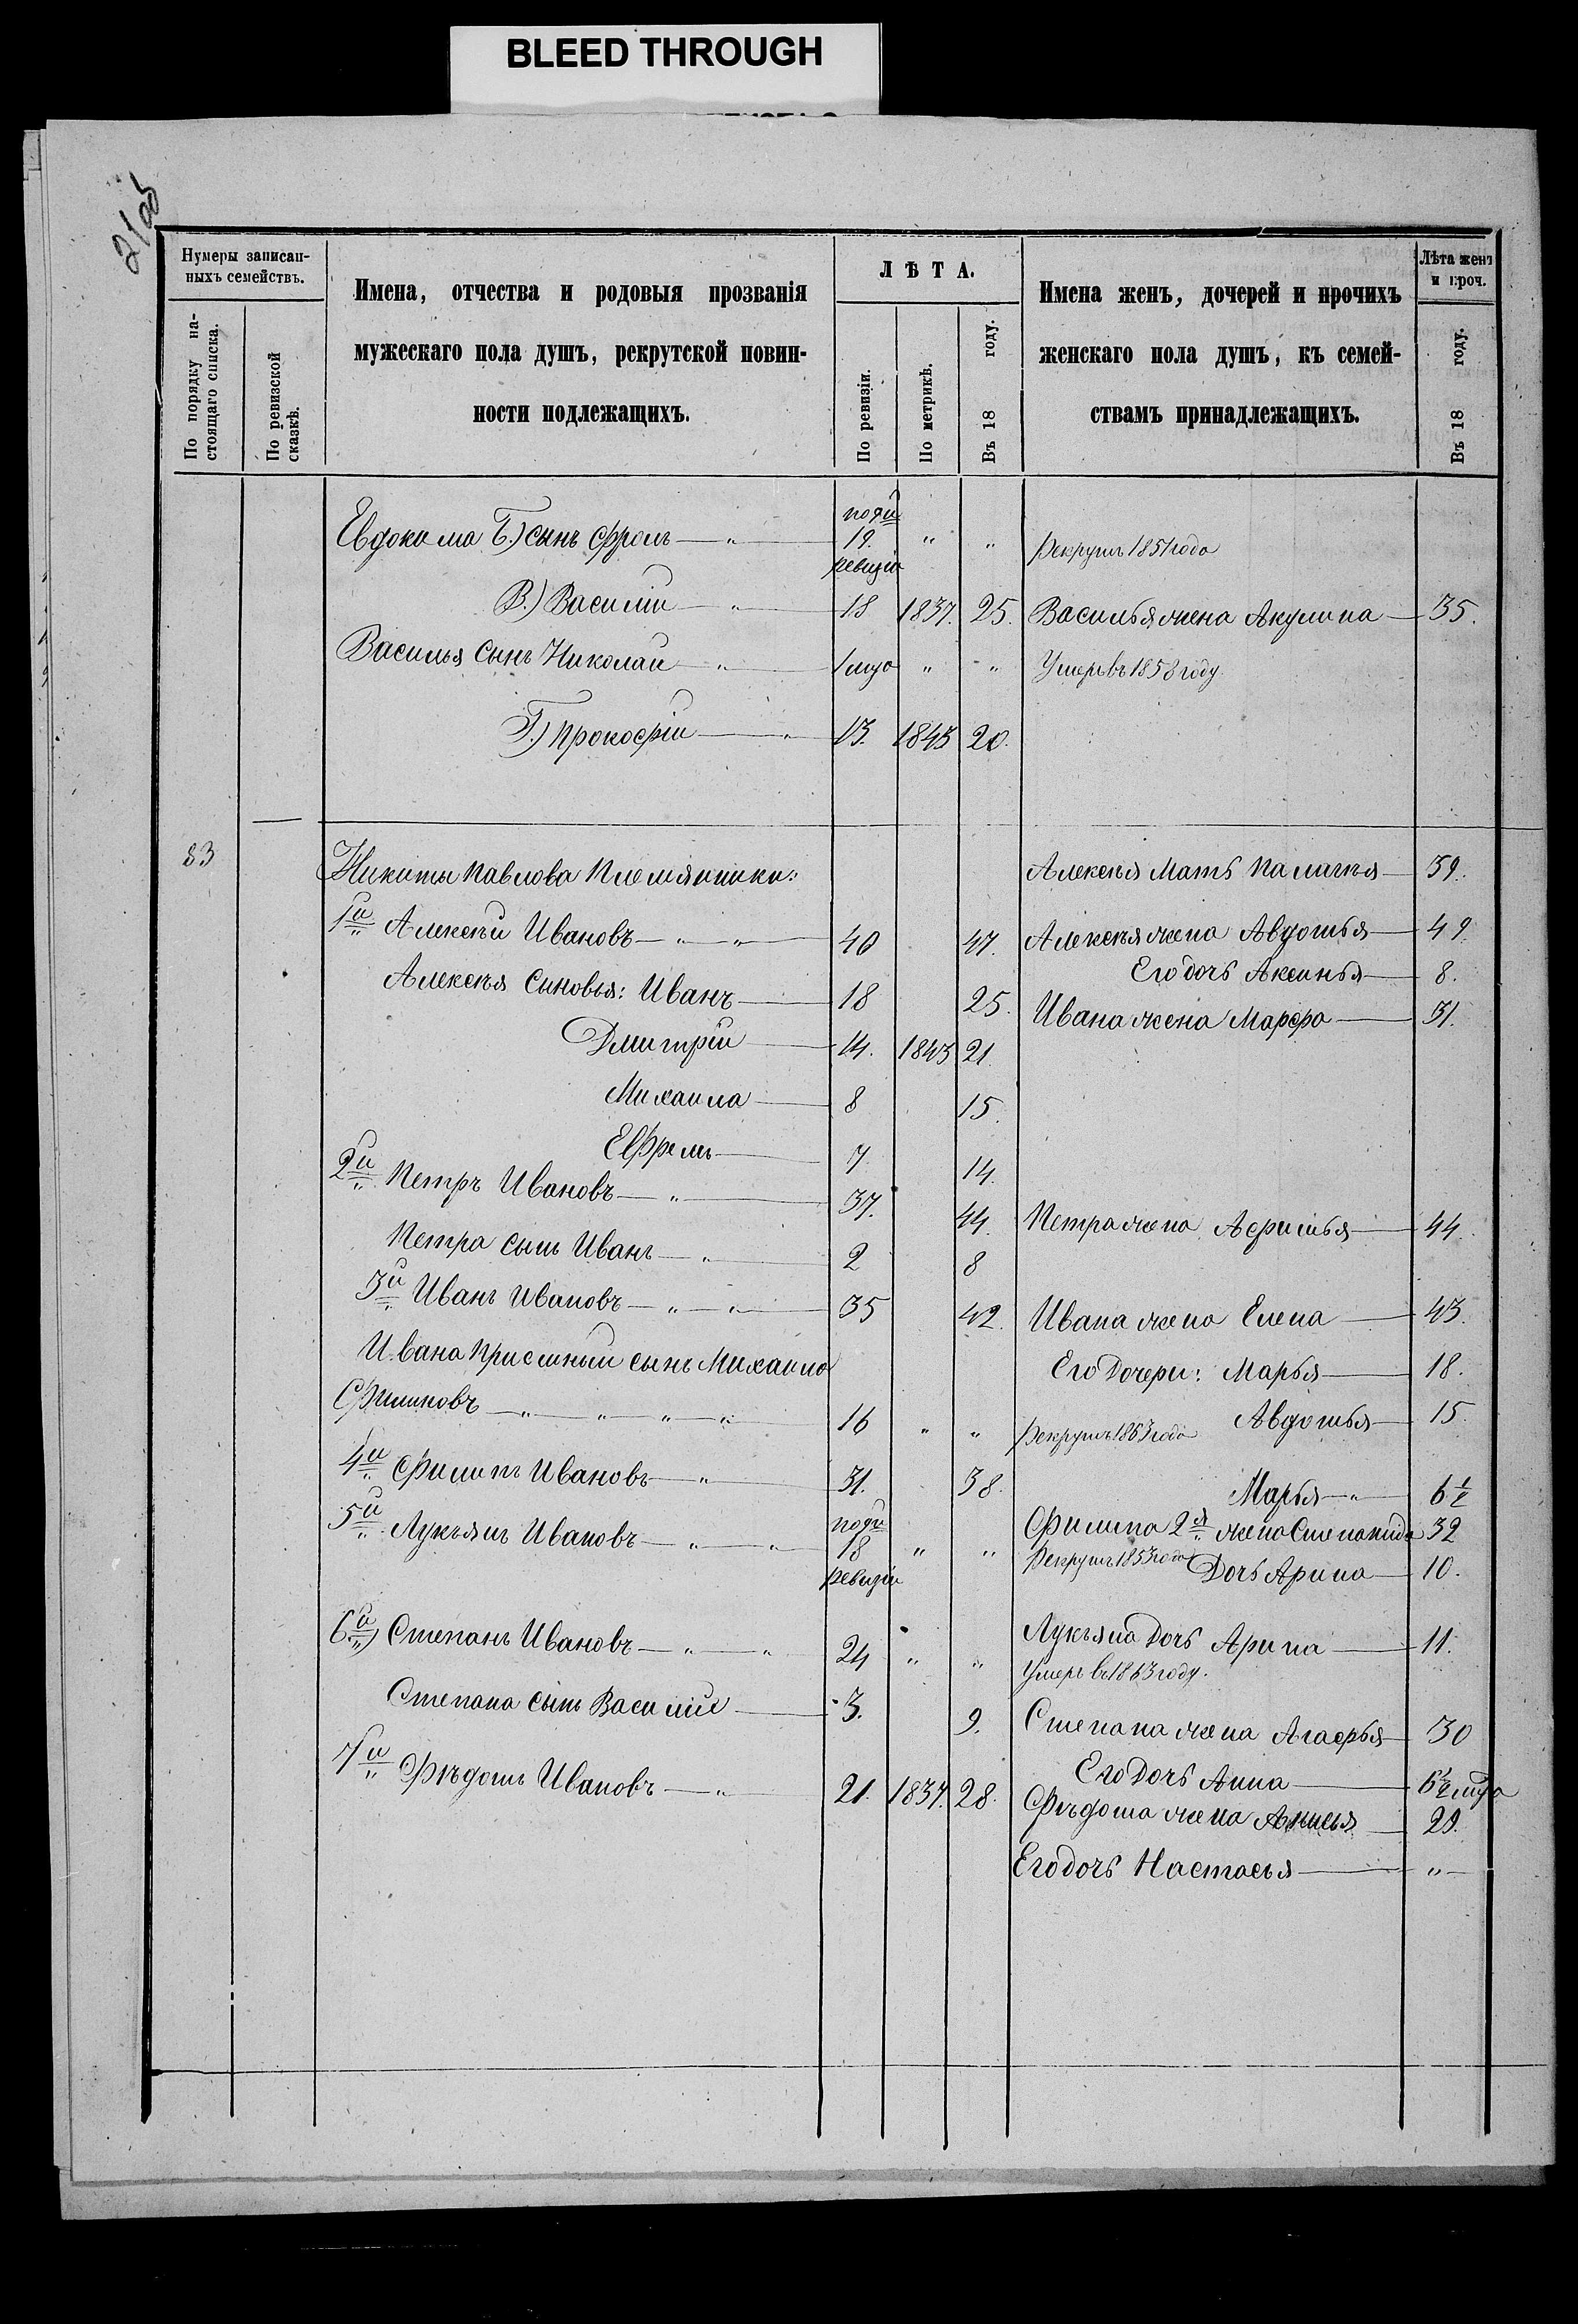 BLEED THROUGH
2/об
Нумеры записан-
ныхъ семействъ.
По порядку на-
стоящаго списка.
По ревизской
сказкѣ.
Имена, отчества и родовыя прозванія
мужескаго пола душъ, рекрутской повин-
ности подлежащихъ.
ЛѢТА.
По ревизіи.
По метрикѣ.
Въ 18 году.
Имена женъ, дочерей и прочихъ
женскаго пола душъ, къ семей-
ствамъ принадлежащихъ.
Лѣта женъ
и проч.
Въ 18 году.
Евдокима Б.) сынъ Фролъ — " — по 9й 19. ревизіи " " рекрутъ 1851 года
В.) Василій — " — 18 1837. 25. Василья жена Акулина — 35.
Василья сынъ Николай — " — 1 " " Умеръ въ 1858 году
Г.) Прокофій — " 13. 1843 20.
83 Никиты Павлова Племянники: Алексѣя Мать Палагѣя — 59.
1й Алексѣй Ивановъ — " — " — 40 47. Алексѣя жена Авдотья — 49.
Его дочь Аксинья — 8.
Алексѣя Сыновья: Иванъ — 18 25. Ивана жена Марфа — 31.
Дмитрій — 14. 1843 21
Михаила — 8 15.
Ефремъ — 7 14.
2й Петръ Ивановъ — " — 37. 44. Петра жена Афимья — 44.
Петра сынъ Иванъ — " — 2 8
3й Иванъ Ивановъ — " — " — 35 42. Ивана жена Елена — 43.
Ивана приемный сынъ Михаила Его Дочери: Марья — 18.
Филиповъ — " — " — " — " — 16 " " рекрутъ 1863 года Авдотья — 15.
4й Филипъ Ивановъ — " — 31. 38. Марья — " — 6 ½
5й Лукьянъ Ивановъ — " — " по 9й 18 ревизіи " " Филипа 2я жена Степанида 32
Рекрутъ 1853 года Дочь Арина — 10.
6й) Степанъ Ивановъ — " — " 24 " " Лукьяна Дочь Арина — 11.
Умеръ въ 1863 году.
Степана сынъ Василій — 3. 9. Степана жена Агафья — 30
Его Дочь Анна — 6½
7й Фѣдотъ Ивановъ — " — 21. 1837. 28. Фѣдота жена Анисья — 29.
Его дочь Настасья — "